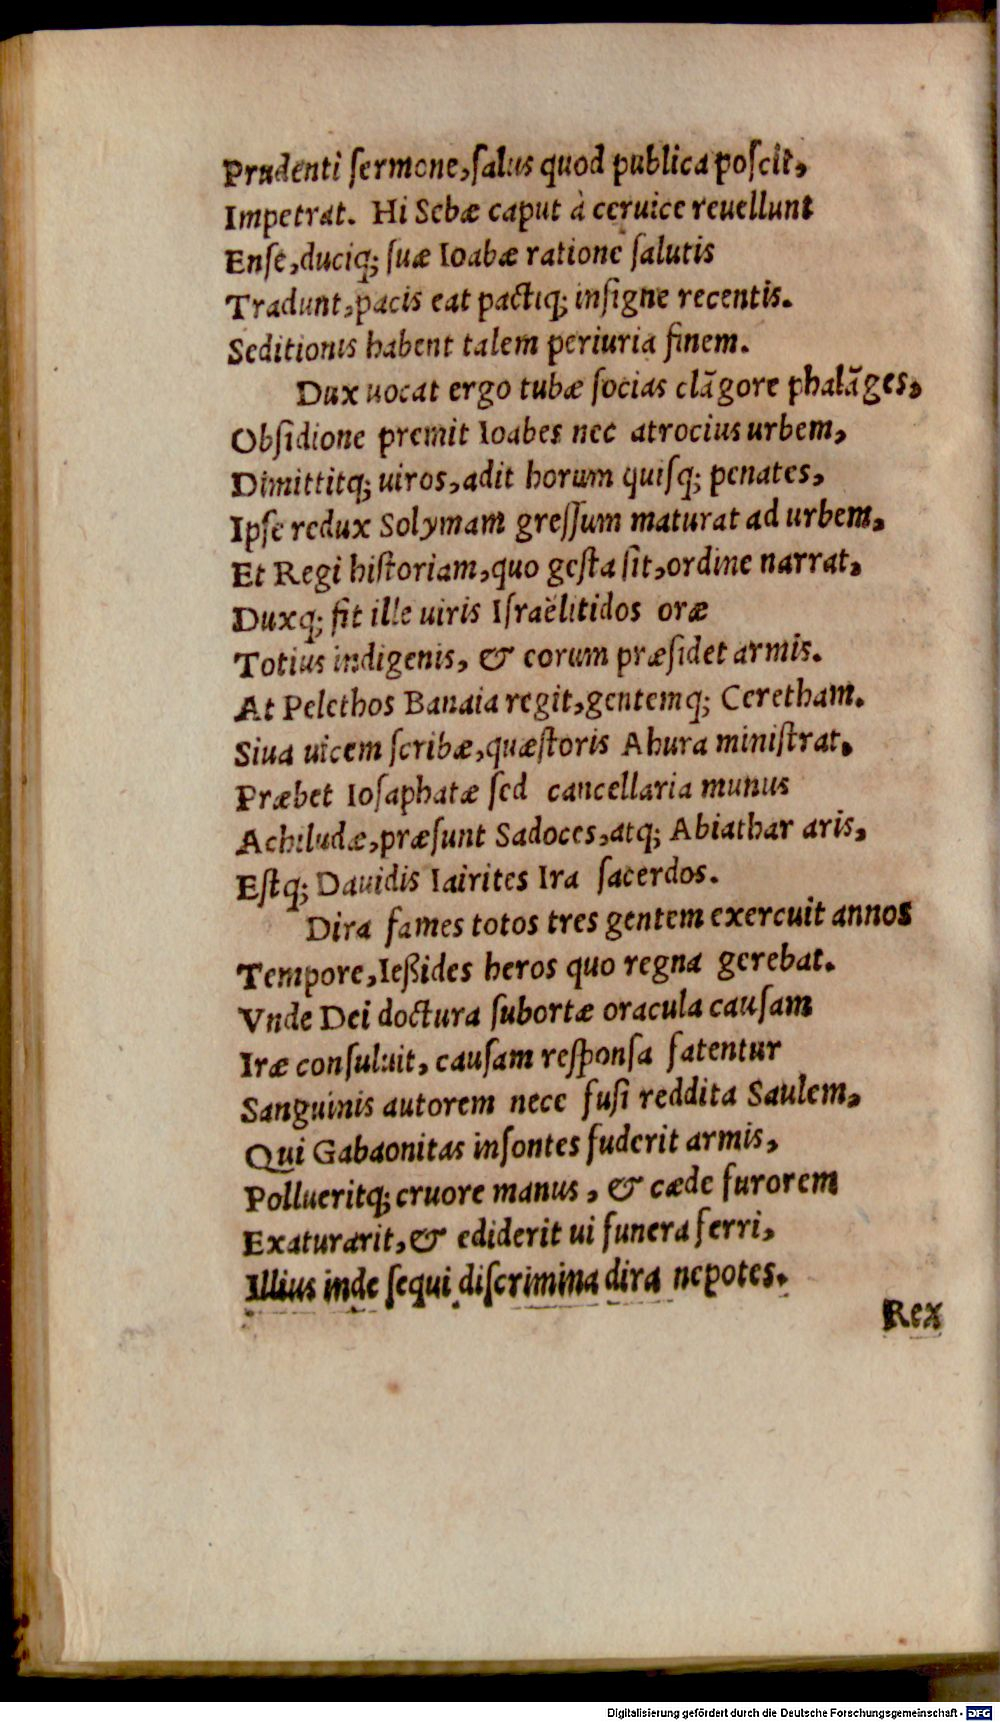 Prudenti ſermone, ſalus quod publica poſcit,
Impetrat. Hi Sebæ caput à ceruice reuellunt
Enſe, duciq; ſuæ Ioabæ ratione ſalutis
Tradunt, pacis eat pactiq; inſigne recentis.
Seditionis habent talem periuria finem.
Dux uocat ergo tubæ ſocias clāgore phalāges,
Obſidione premit Ioabes nec atrocius urbem,
Dimittitq; uiros, adit horum quiſq; penates,
Ipſe redux Solymam greſſum maturat ad urbem,
Et Regi hiſtoriam, quo geſta ſit, ordine narrat,
Duxq; fit ille uiris Iſraëlitidos oræ
Totius indigenis, & eorum præſidet armis.
At Pelethos Banaia regit, gentemq; Ceretham.
Siua uicem ſcribæ, quæſtoris Ahura miniſtrat,
Præbet Ioſaphatæ ſed cancellaria munus
Achiludæ, præſunt Sadoces, atq; Abiathar aris,
Eſtq; Dauidis Iairites Ira ſacerdos.
Dira fames totos tres gentem exercuit annos
Tempore, Ießides heros quo regna gerebat.
Vnde Dei doctura ſubortæ oracula cauſam
Iræ conſuluit, cauſam reſponſa fatentur
Sanguinis autorem nece fuſi reddita Saulem,
Qui Gabaonitas inſontes fuderit armis,
Pollueritq; cruore manus, & cæde furorem
Exaturarit, & ediderit ui funera ferri,
Illius inde ſequi diſcrimina dira nepotes.
Rex
Digitalisierung gefördert durch die Deutsche Forschungsgemeinschaft - DFG